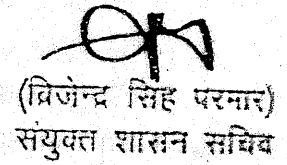 (विजेन्द्र सिंह परमार)
संयुक्त शासन सचिव